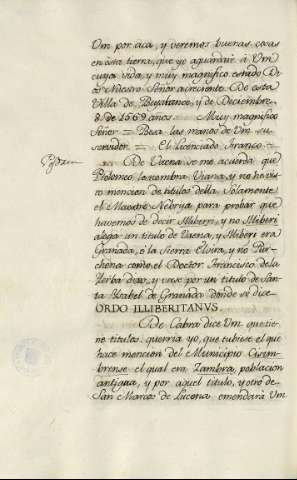 Vm por acá, y veremos buenas cosas
en ésta tierra, que yo aguardaré á Vm
cuya vida, y muy magnifico estado Di-
os Nuestro Señor acreciente. De esta
Villa de Bujalance, y de Diciembre
8. de 1569 años. Muy magnifico
Señor = Besa las manos de Vm su
servidor = El Licenciado Franco =
De Vaena se me acuerda que
Ptolomeo le nombra Viana, y no he vis-
to mencion de titulos della. Solamente
el Maestro Nebrija para probar que
havemos de decir Illiberi, y no Illiberi
alega un titulo de Vaena, y Illiberi era
Granada, ó la Sierra Elvira, y no Pur-
chena como el Doctor Francisco de la
Yerba dixo, y vése por un titulo de San-
ta Ysabel de Granada donde se dice
ORDO ILLIBERITANVS.
De Cabra dice Vm que tie-
ne titulos. querria yo, que tubiese el que
hace mencion del Municipio Cisim-
brense el qual era Zambra, poblacion
antigua, y por aquel titulo, y otro de
San Marcos de Lucena emendará Vm